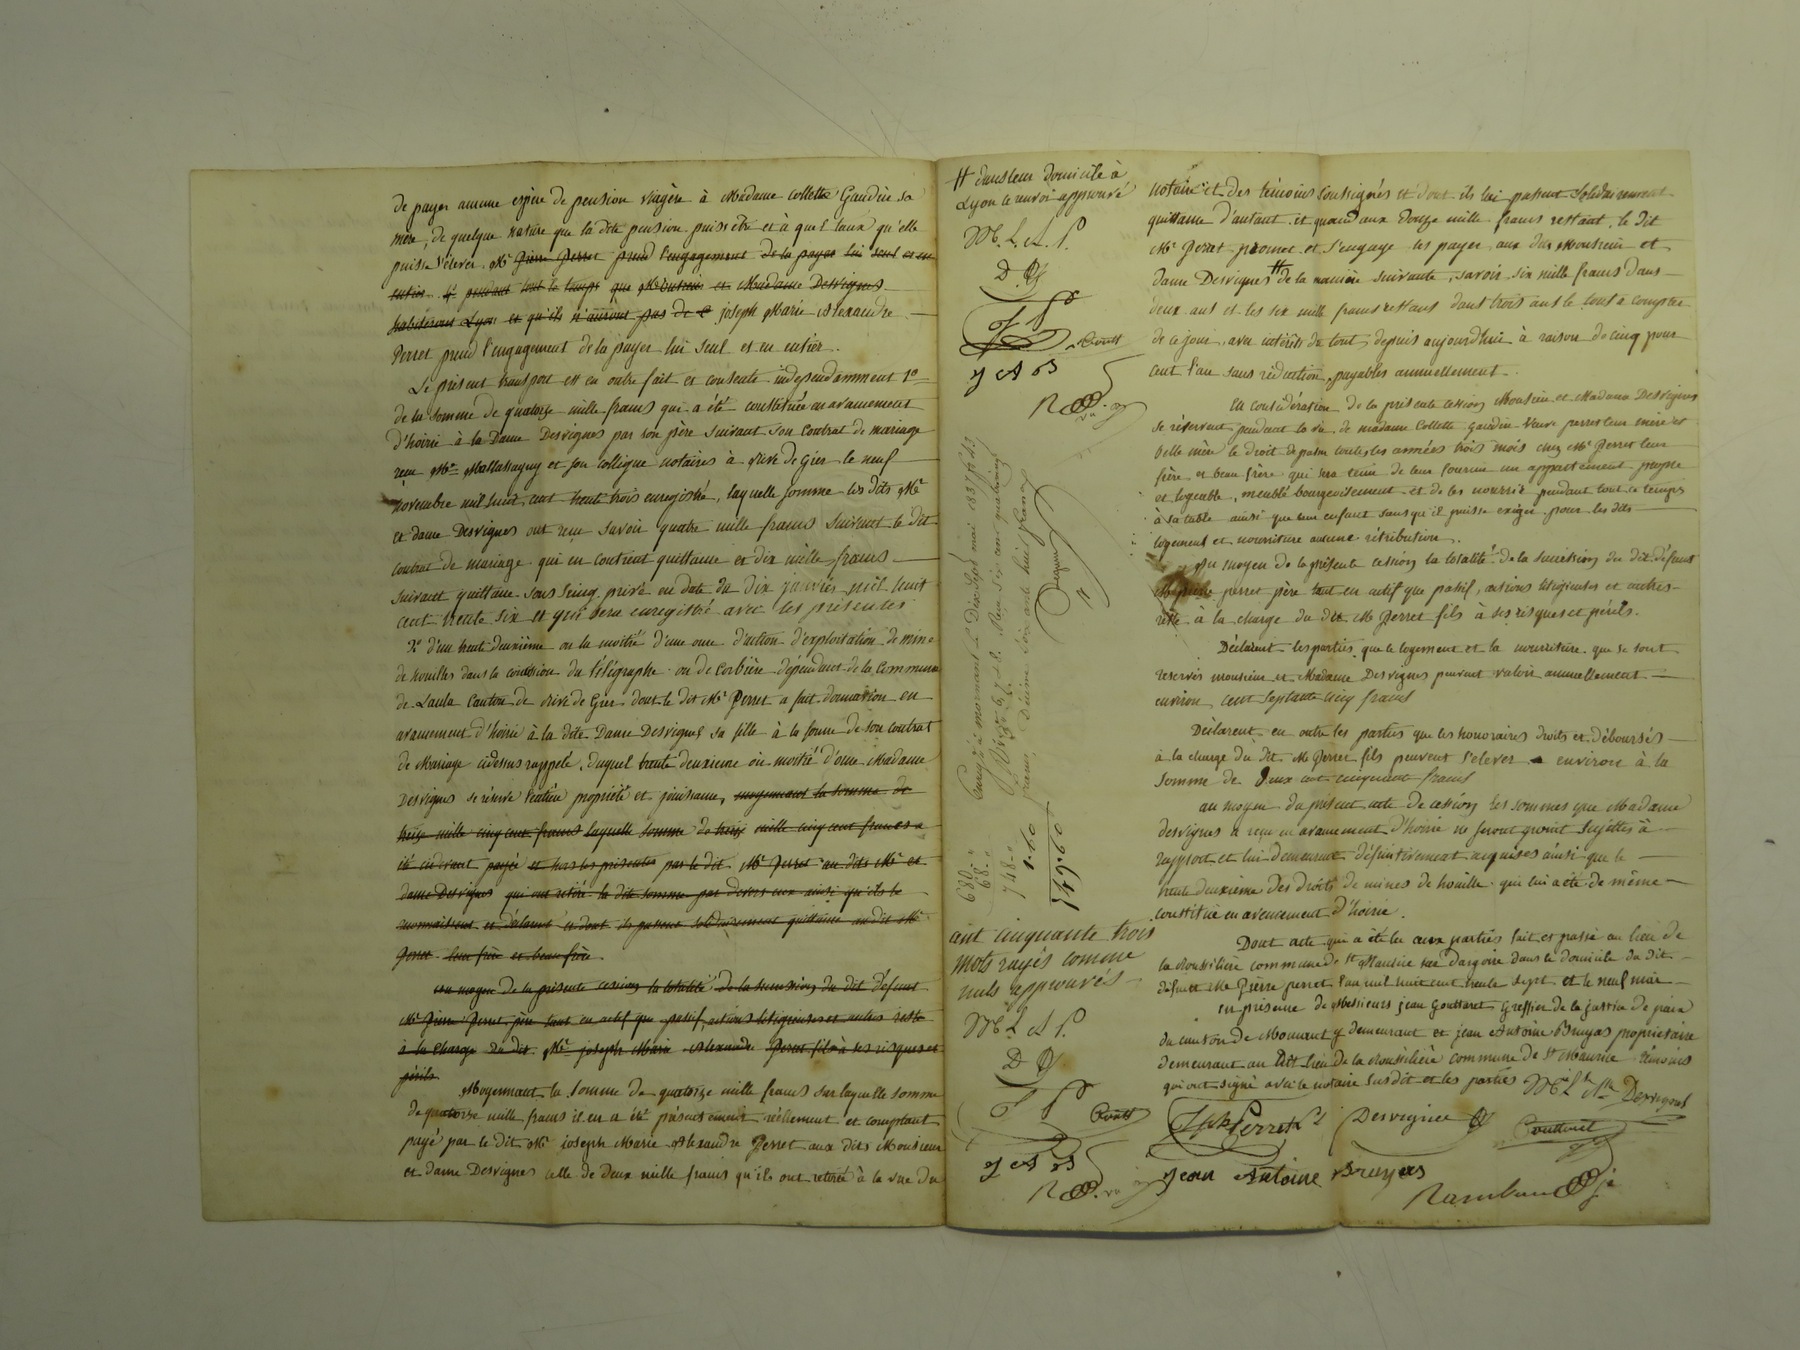 de payer aucune espèce de pension viagère à Madame Collette Gaudin sa
mère, de quelque nature que la dite pension puisse être et à quel taux qu'elle
puisse s'élever. Mr Pierre Perret prend l'engagement de la payer lui seul et en
entier. pendant tout le temps que Monsieur et Madame Desvignes
habiterons Lyon et qu'ils n'auront pas de joseph Marie Alexandre
Perret prend l'engagement de la payer lui seul et en entier.
Le présent transport est en outre fait et consente indépendamment 1º
de la somme de quatorze mille francs qui a été constituée en avancement
d'hoirie à la Dame Desvignes par son père suivant son contrat de mariage
reçu Me Mallassagny et son collègue notaires à Rive de Gier le neuf
novembre mil huit cent trente trois enregistré, laquelle somme les dits Mr
et dame Desvignes ont reçu savoir quatre mille francs suivant le dit
contrat de mariage qui en contient quittance et dix mille francs
suivant quittance sous seing privé en date du dix janvier mil huit
cent trente six et qui sera enregistré avec les présentes.
2º d'un trente deuxième ou la moitié d'une once d'action d'exploitation de mine
de houilles dans la concession du télégraphe ou de Corbière dépendant de la Commune
de Laula Canton de Rive de Gier dont le dit Mr Perret a fait donnation en
avancement d'hoirie à la dite Dame Desvignes sa fille à la forme de son contrat
de Mariage cidessus rappelé, duquel trente deuxieme ou moitié d'once Madame
Desvignes se réserve l'entière propriété et jouissance, moyennant la somme de
treize mille cinq cent francs laquelle somme de treize mille cinq cent francs a
été cidevant payée et hors les présentes par le dit Mr Perret aux dits Mr et
dame Desvignes qui ont retiré la dite somme par devers eux ainsi qu'ils le
reconnaissent et déclarent et dont ils passent solidairement quittance au dit Mr
Perret leur frère et beau frère.
au moyen de la présente cession la totalité de la succession du dit défunt
Mr Pierre Perret père tant en actif que passif, actions litigieuses et autres reste
à la charge du dit Mr joseph Marie Alexandre Perret fils à ses risques et
périls.
Moyennant la somme de quatorze mille francs sur laquelle somme
de quatorze mille francs il en a été présentement réellement et comptant
payé par le dit Mr joseph Marie Alexandre Perret aux dits Monsieur
et dame Desvignes celle de deux mille francs qu'ils ont retirée à la vue du
# dans leur domicile à
Lyon ce renvoi approuvé
M. L. A. P.
D
J P
Coutt
J A B
R
Enregé à mornant le Dix Sept mai 1837
Reçu six cent quatrevingt
francs, Décime soixante huit francs
680. "
68. "
748. "
1.60
749.60
cent cinquante trois
mots rayés comme
nuls approuvés
M. L. A. P.
D
J P
Coutt
J A B
R
notaire et des témoins soussignés et dont ils lui passent solidairement
quittance d'autant et quand aux douze mille francs restant, le dit
Mr Perret promet et s'engage les payer aux dits Monsieur et
dame Desvignes # de la manière suivante, savoir six mille francs dans
deux ans et les six mille francs restans dans trois ans le tout à compter
de ce jour, avec intérêts du tout depuis aujourdhui à raison de cinq pour
cent l'an sans réduction, payables annuellement.
En considération de la présente cession Monsieur et Madame Desvignes
se réservent pendant la vie de madame Collette Gaudin Veuve perret leur mère et
belle mère le droit de passer toutes les années trois mois chez Mr Perret leur
frère et beau frère qui sera tenu de leur fournir un appartement propre
et logeable, meublé bourgeoisement et de les nourrir pendant tout ce temps
à sa table ainsi que leur enfant sans qu'il puisse exiger pour les dits
logement et nourriture aucune rétribution.
Au moyen de la présente cession la totalité de la succession du dit défunt
perret père tant en actif que passif, actions litigieuses et autres
reste à la charge du dit M Perret fils à ses risques et périls.
Déclarent les parties que le logement et la nourriture que se sont
reservés monsieur et Madame Desvignes peuvent valoir annuellement
environ cent septante cinq francs
Déclarent en outre les parties que les honoraires droits et déboursés
à la charge du dit M Perret fils peuvent s'elever à environ à la
somme de Deux cent cinquante francs
au moyen du présent acte de cession les sommes que Madame
desvignes a reçu en avancement d'hoirie ne seront point sujettes à
rapport et lui demeurent définitivement acquises ainsi que le
trente deuxième des droits de mines de houille qui lui a été de même
constitué en avancement d'hoirie.
Dont acte qui a été lu aux parties fait et passé au lieu de
la Roussilière commune de St Maurice sur dargoire dans le domicile du dit
défunt Mr Pierre perret l'an mil huit cent trente sept et le neuf mai
en présence de Messieurs jean Gouttaret Greffier de la justice de paix
du canton de Mornant y demeurant et jean Antoine Bruyas propriétaire
demeurant au Dit lieu de la Roussilière commune de St Maurice témoins
qui ont signé avec le notaire susdit et les parties
Desvignes
Jph Perret
Desvignes
Jean Antoine Bruyas